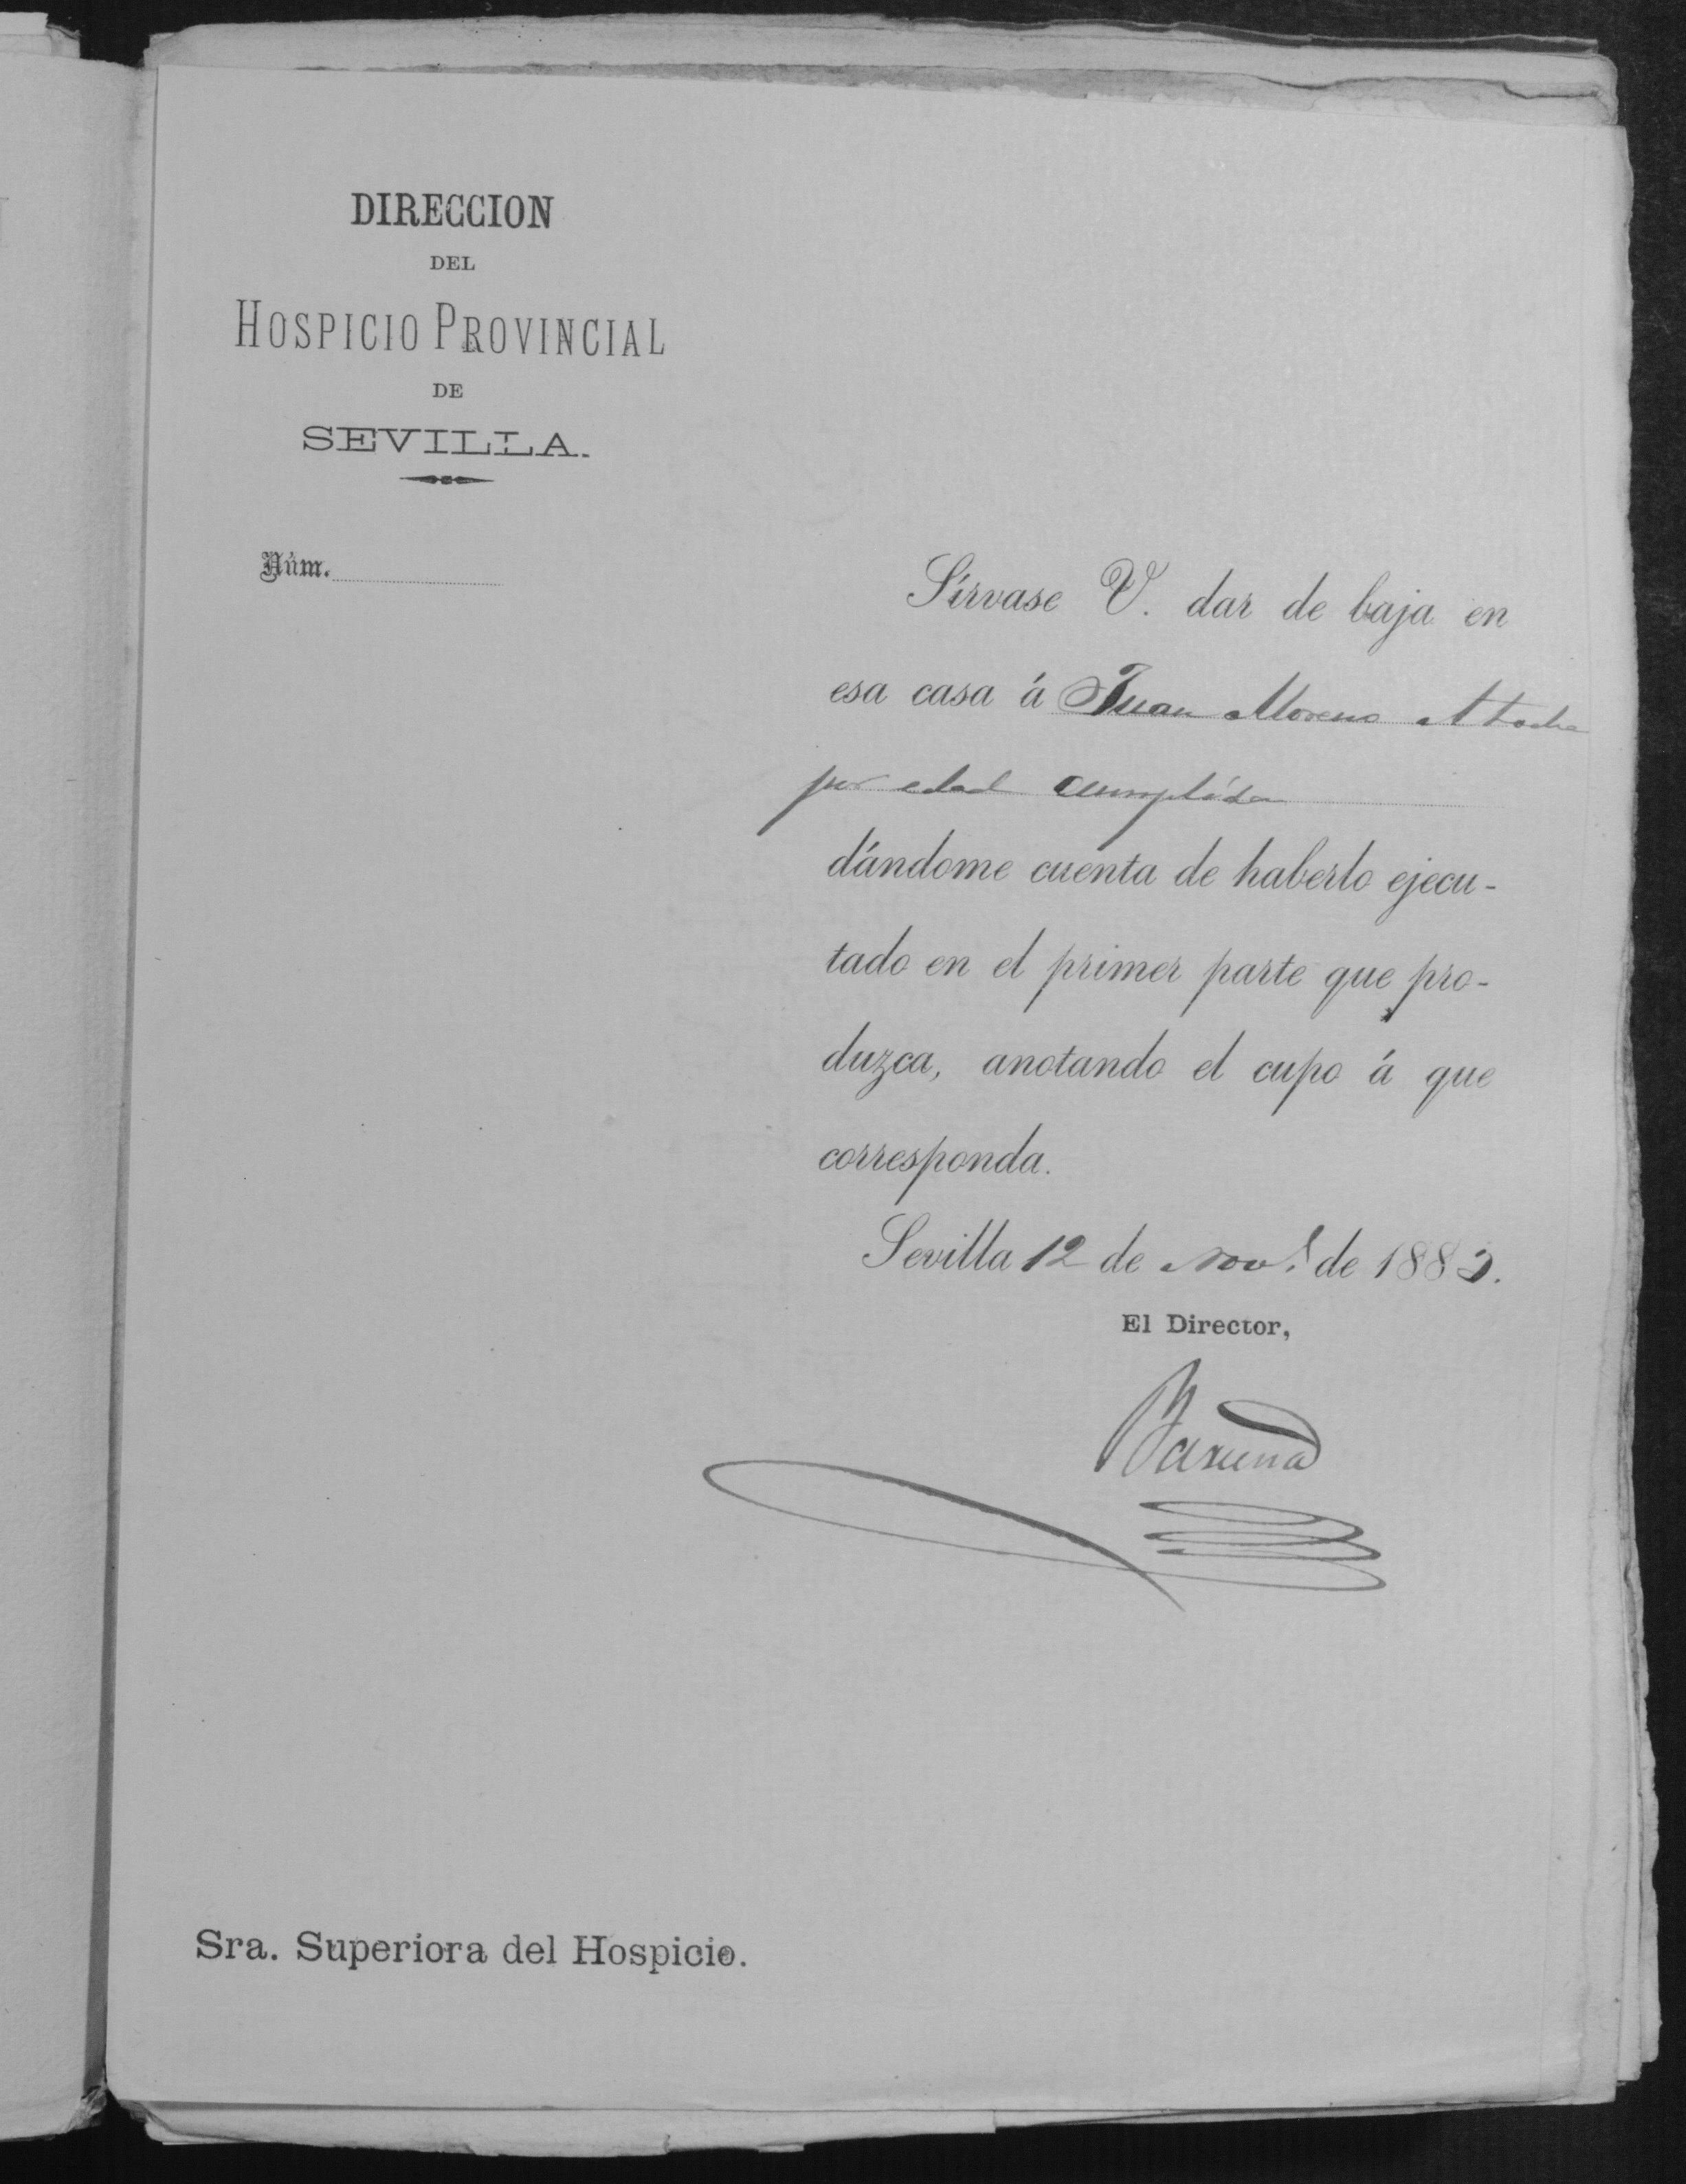 DIRECCION
DEL
HOSPICIO PROVINCIAL
DE
SEVILLA.
Núm.
Sírvase V. dar de baja en
esa casa á Juan Moreno Atocha
por edad cumplida
dándome cuenta de haberlo ejecu-
tado en el primer parte que pro-
duzca, anotando el cupo á que
corresponda.
Sevilla 12 de Nov.e de 188
El Director,
Sra. Superiora del Hospicio.